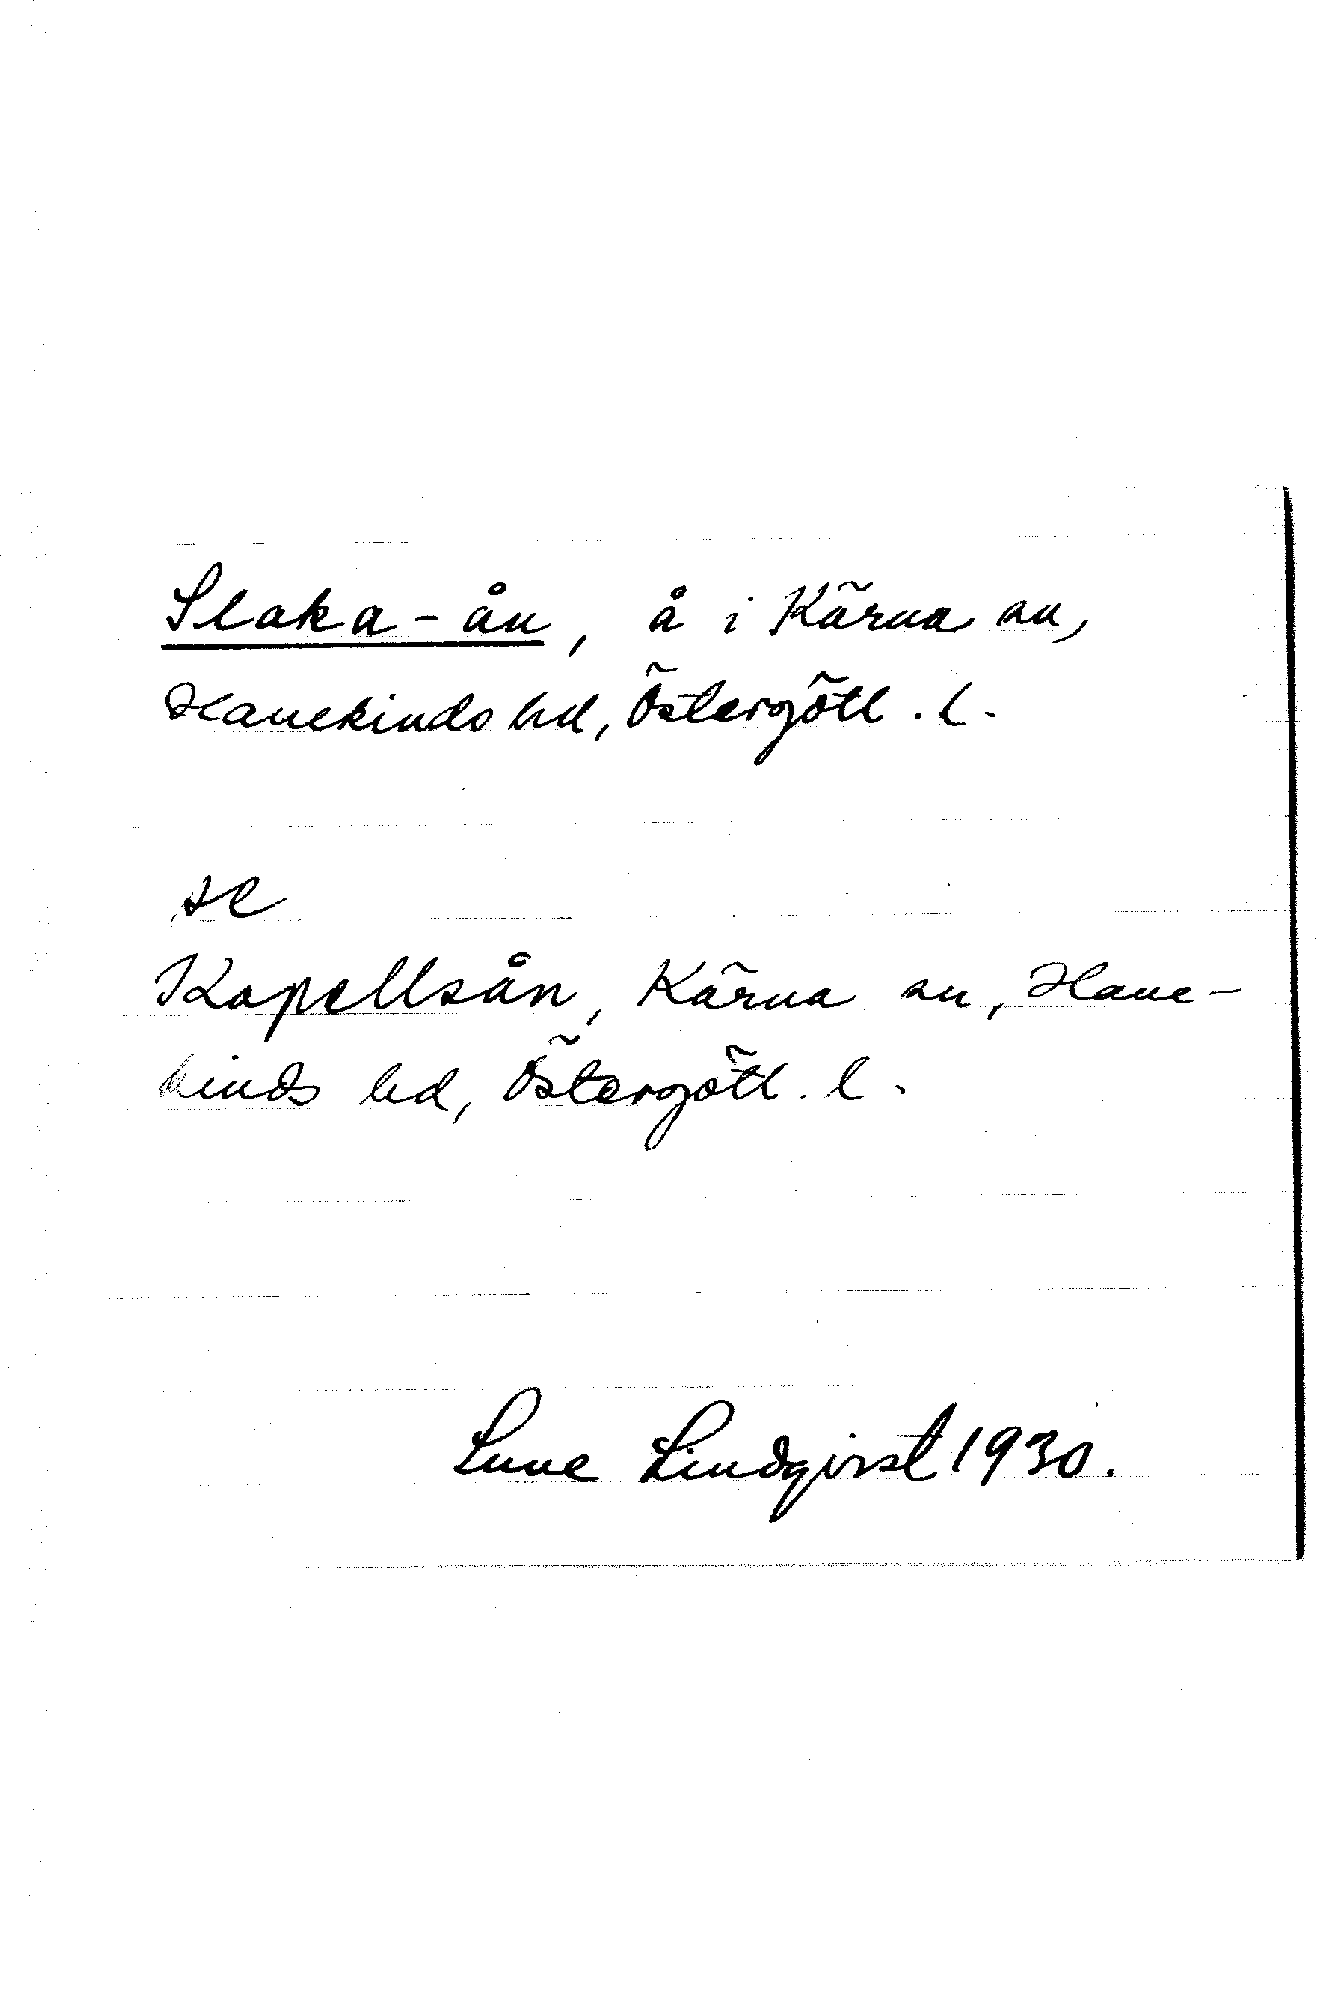 Slaka-ån, å i Kärna sn,
Hanekinds hd, Östergötl. l.
se
Kapellsån, Kärna sn, Hane-
kinds hd, Östergötl. l.
Sune Lindqvist 1930.